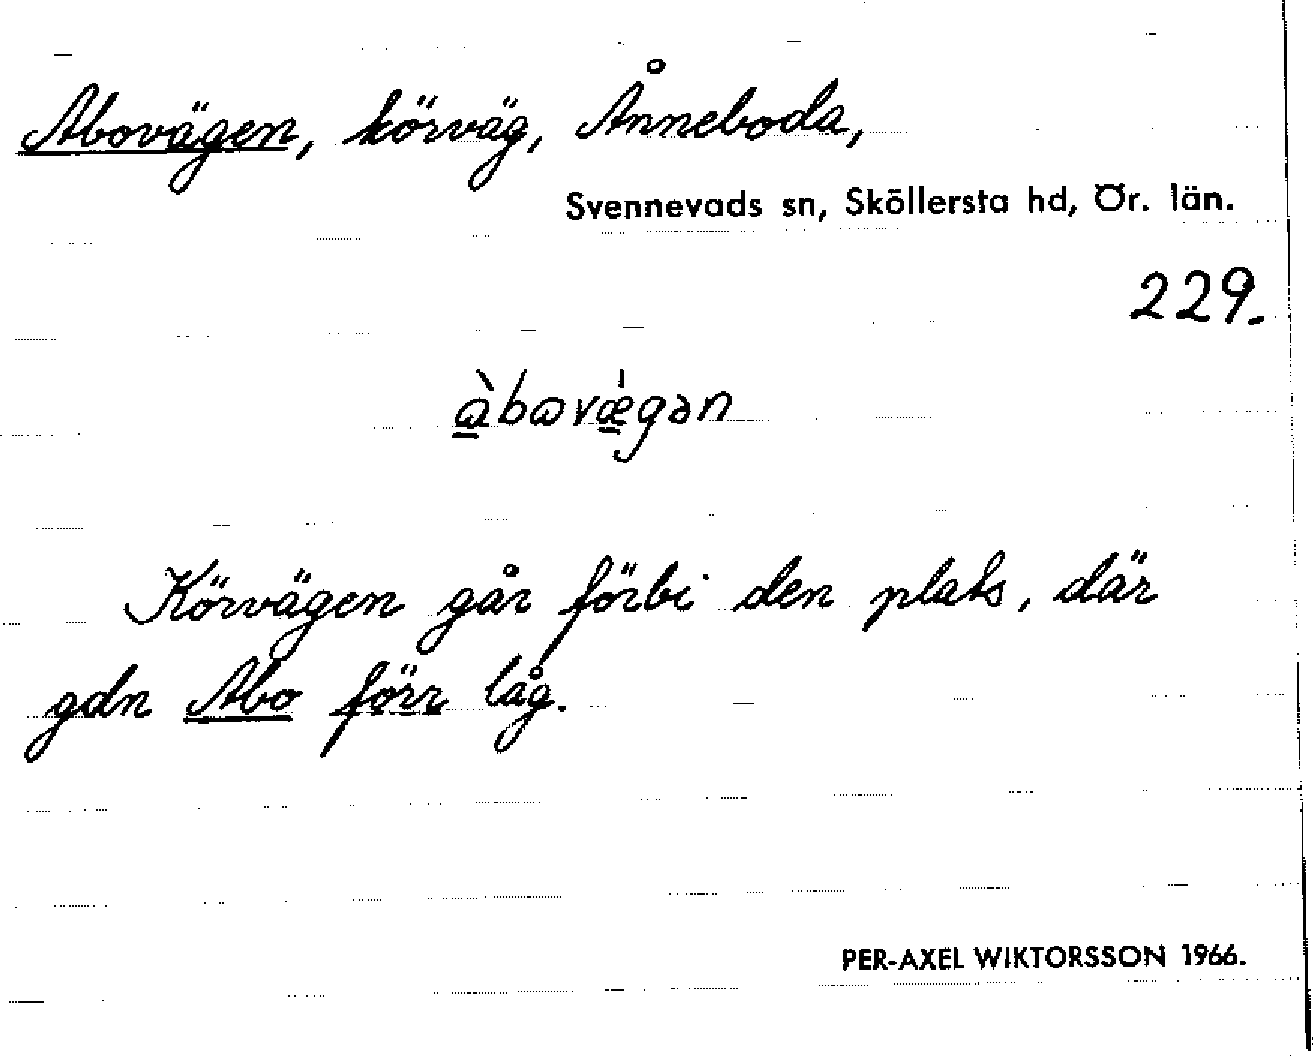 Abovägen, körväg, Ånneboda,
Svennevads sn, Sköllersta hd, Ör. län.
229.
à̱bɷvǽ̱gən
Körvägen går förbi den plats, där
gdn Abo förr låg.
PER-AXEL WIKTORSSON 1966.